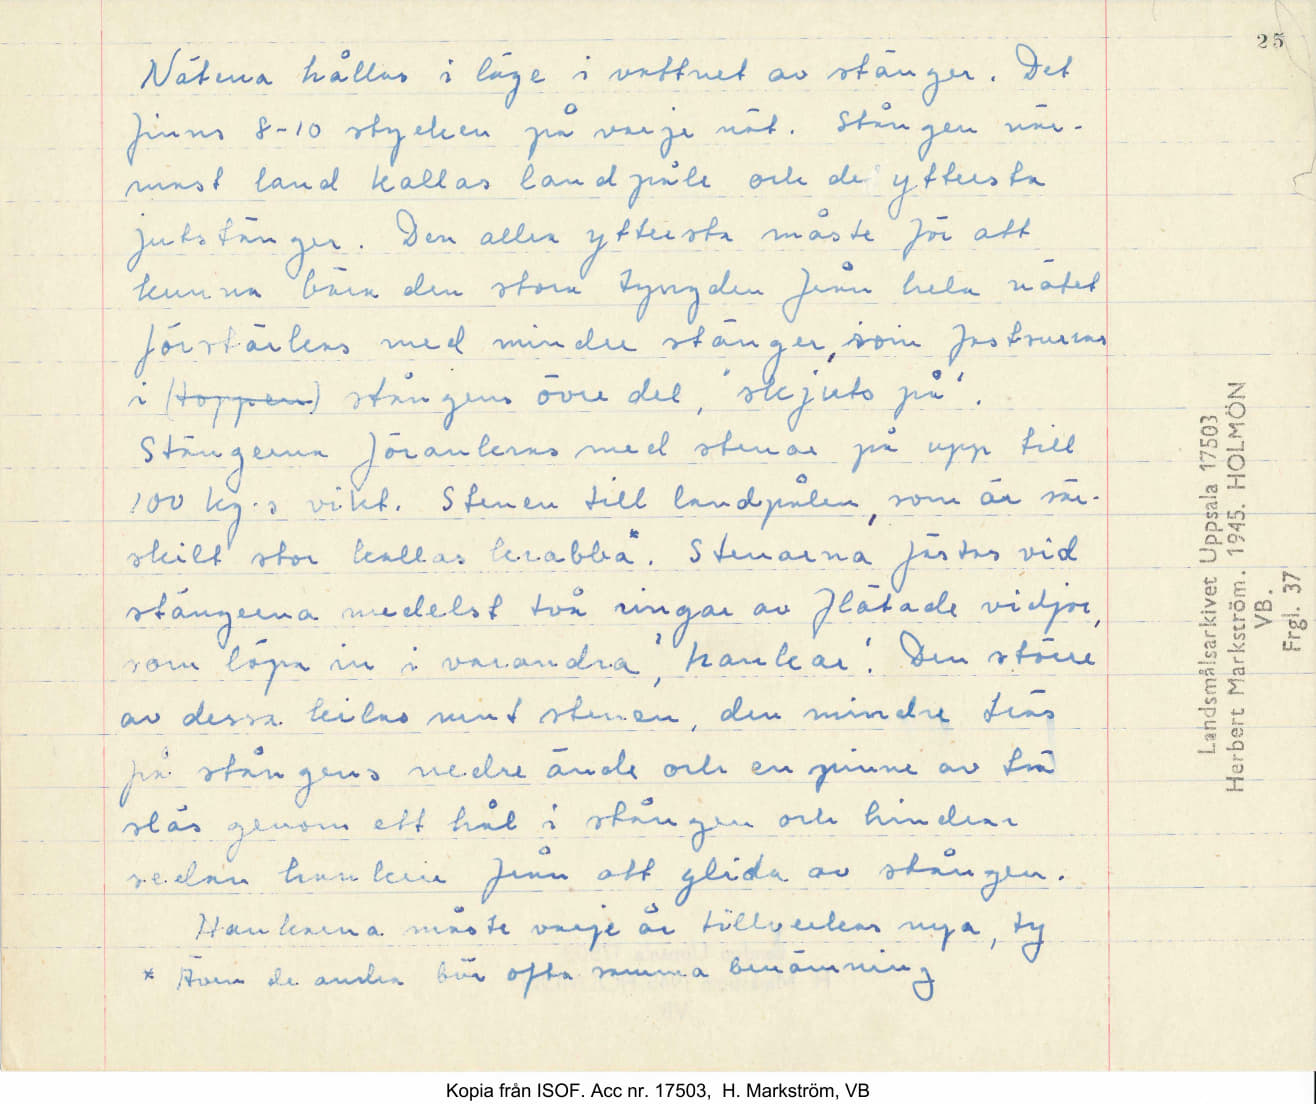 25
Nätena hållas i läge i vattnet av stänger. Det
finns 8-10 stycken på varje nät. Stången när-
mast land kallas landpåle och de yttersta
jutstänger. Den allra yttersta måste för att
kunna bära den stora tyngden från hela nätet
förstärkas med mindre stänger, som fastsurras
i (toppen) stångens övre del, 'skjuts på'.
Stängerna förankras med stenar på upp till
100 kg.s vikt. Stenen till landpålen, som är sär-
skilt stor kallas krabba*. Stenarna fästas vid
stängerna medelst två ringar av flätade vidjor,
som löpa in i varandra, 'hankar'. Den större
av dessa kilas runt stenen, den mindre träs
på stångens nedre ände och en pinne av trä
slås genom ett hål i stången och hindrar
sedan hanken från att glida av stången.
Hankarna måste varje år tillverkas nya, ty
* Även de andra bär ofta samma benämning
Landsmålsarkivet Uppsala 17503
Herbert Markström. 1945. HOLMÖN
VB.
Frgl. 37
Kopia från ISOF. Acc nr. 17503, H. Markström, VB